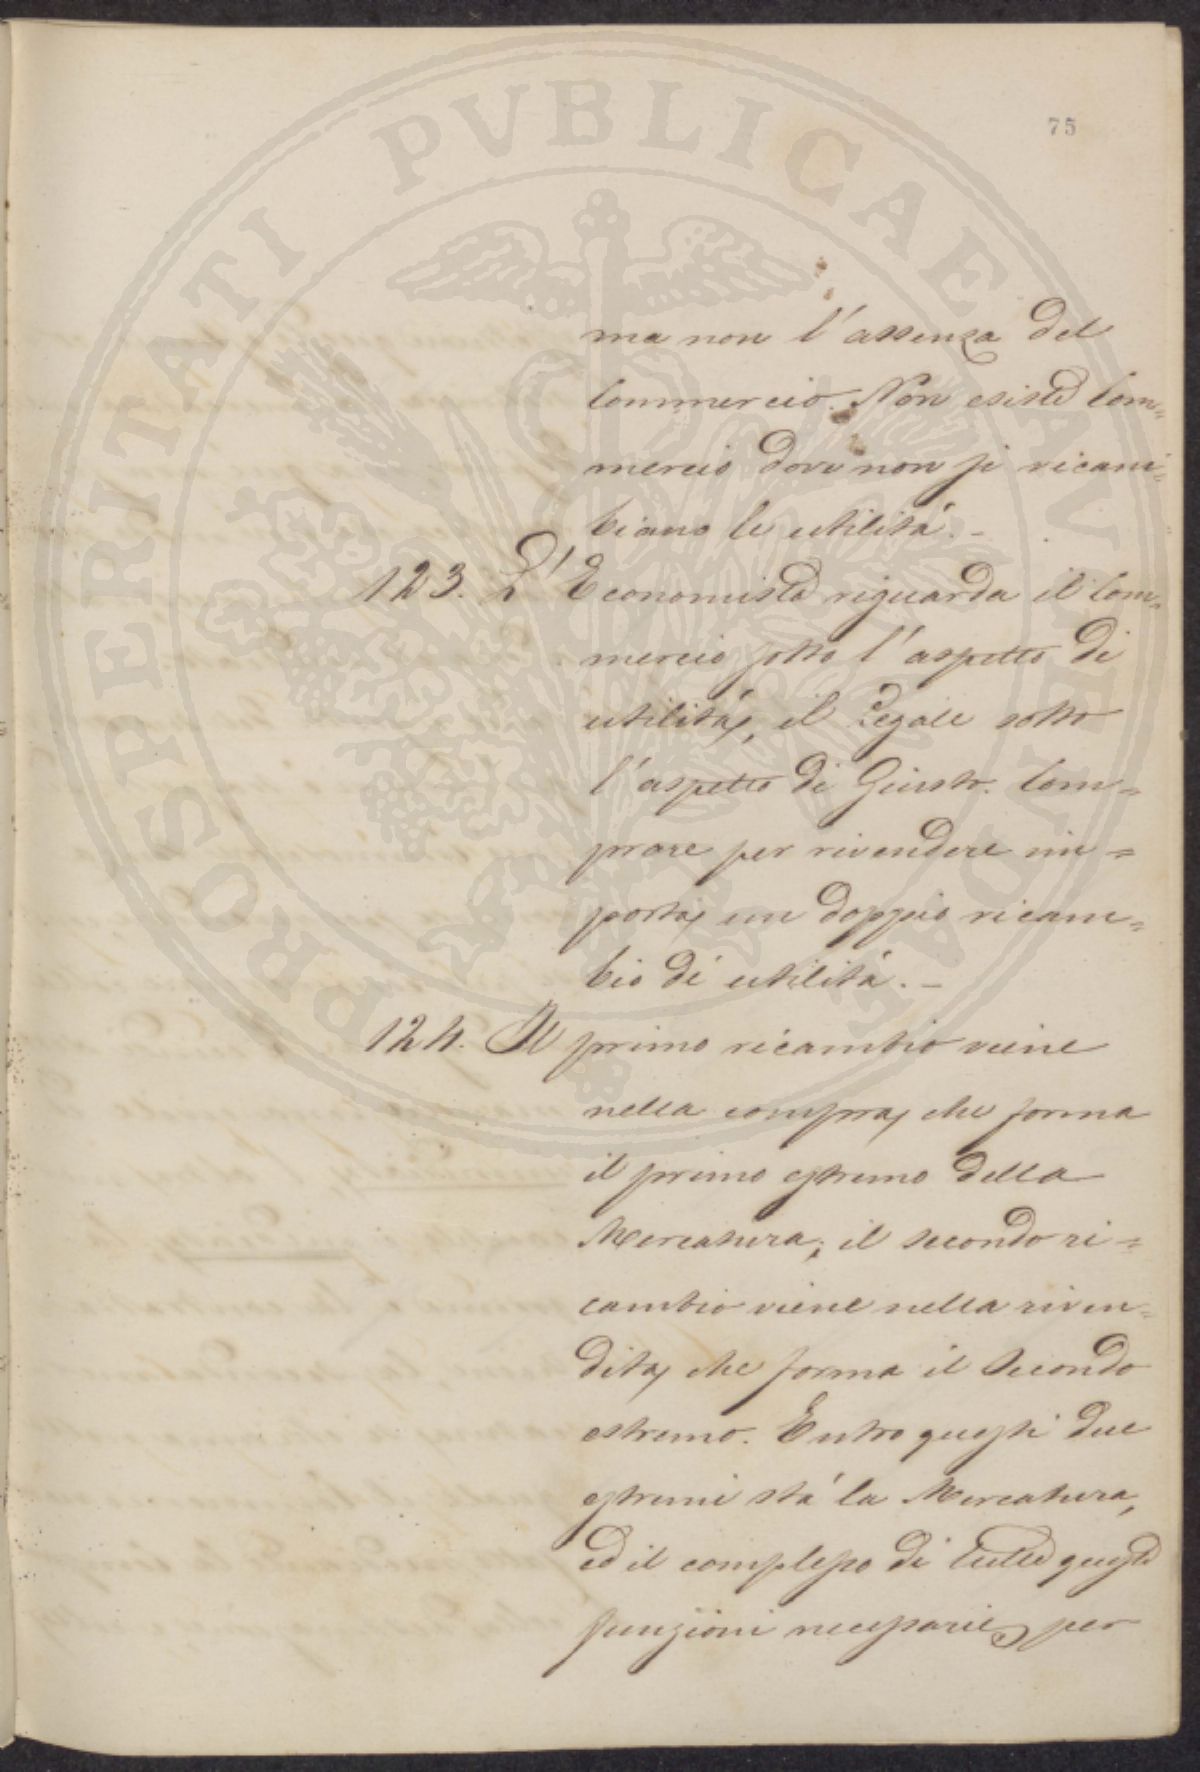 75
PROSPERITATI PVBLICAE AVGENDAE
ma non l'assenza del
Commercio. Non esiste Com=
mercio dove non si ricam=
biano le utilità. -
123. L'Economista riguarda il Com=
mercio sotto l'aspetto di
utilità, il Legale sotto
l'aspetto di Giusto. Com=
prare per rivendere im=
porta un doppio ricam=
bio di utilità. -
124. Il primo ricambio viene
nella compra, che forma
il primo estremo della
Mercatura; il secondo ri=
cambio viene nella riven=
dita, che forma il secondo
estremo. Entro questi due
estremi stà la Mercatura,
ed il complesso di tutte queste
funzioni necessarie per